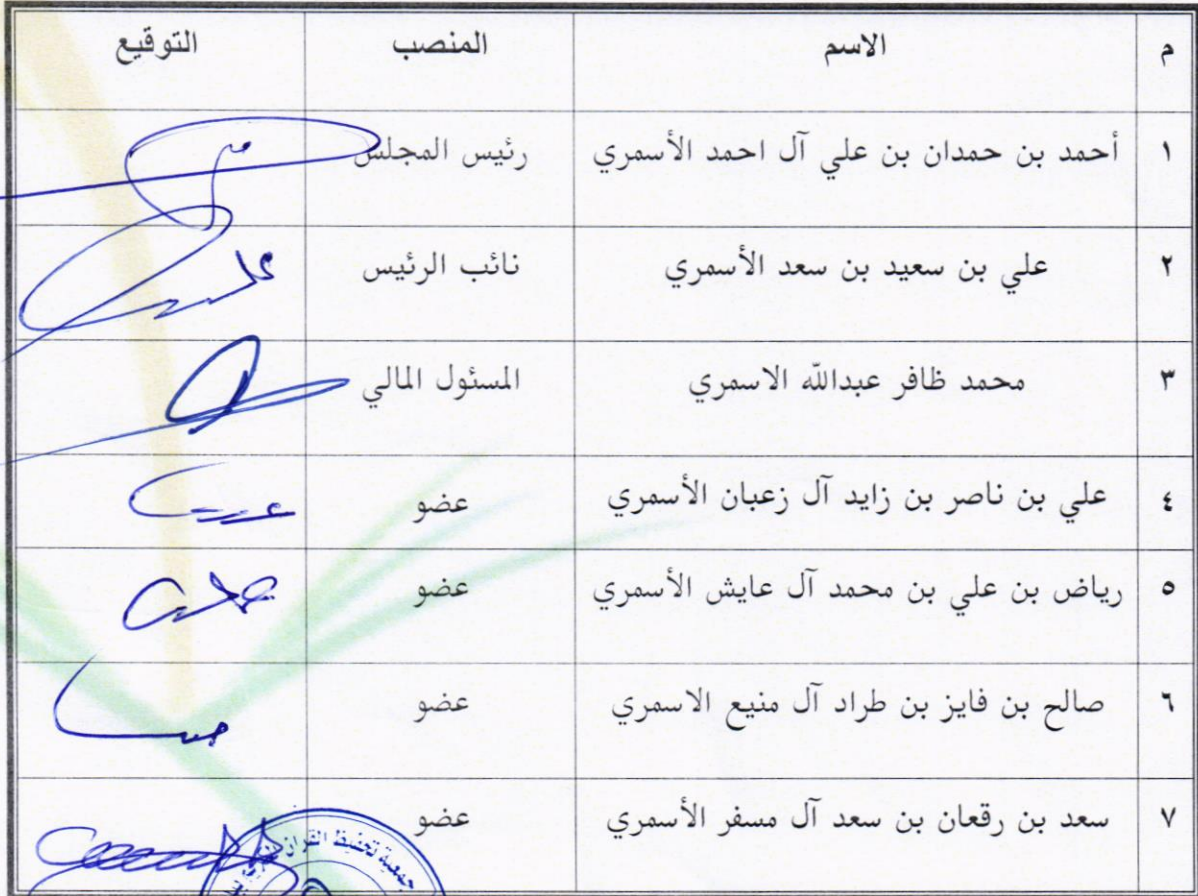 م الاسم المنصب التوقيع
١ أحمد بن حمدان بن علي آل احمد الأسمري رئيس المجلس
٢ علي بن سعيد بن سعد الأسمري نائب الرئيس
٣ محمد ظافر عبدالله الاسمري المسئول المالي
٤ علي بن ناصر بن زايد آل زعبان الأسمري عضو
٥ رياض بن علي بن محمد آل عايش الأسمري عضو
٦ صالح بن فايز بن طراد آل منيع الاسمري عضو
٧ سعد بن رقعان بن سعد آل مسفر الأسمري عضو
جمعية تحفيظ القران